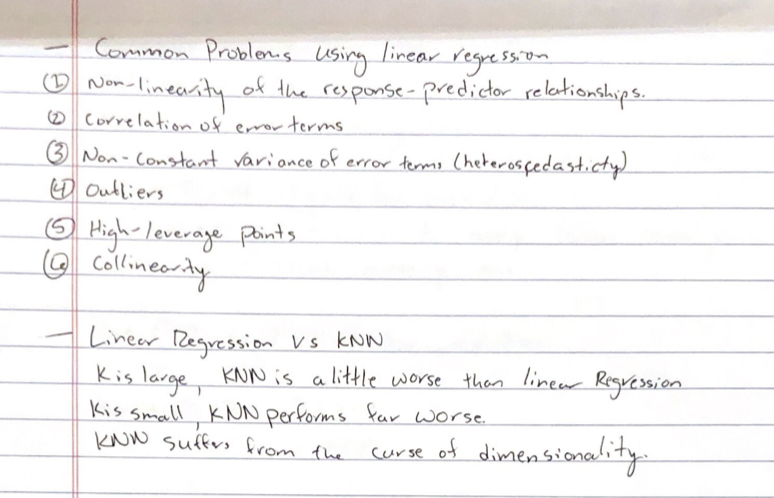 — Common Problems using linear regression
① Non-linearity of the response-predictor relationships.
② Correlation of error terms
③ Non-Constant variance of error terms (heteroscedasticty)
④ Outliers
⑤ High-leverage points
⑥ Collinearity
— Linear Regression Vs KNN
K is large, KNN is a little worse than linear Regression
K is small, KNN performs far worse.
KNN suffers from the curse of dimensionality.